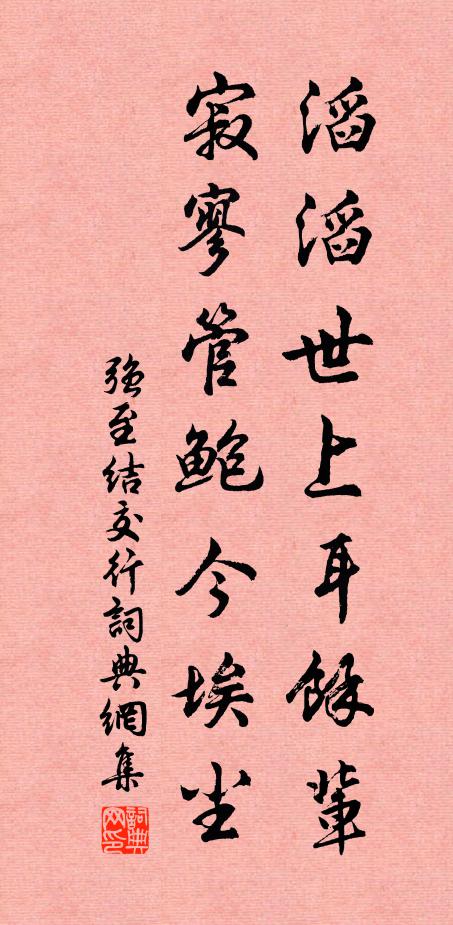 滔滔世上耳餘輩
寂寥管鮑今埃尘
強至結交行詞典網集
詞典
网印